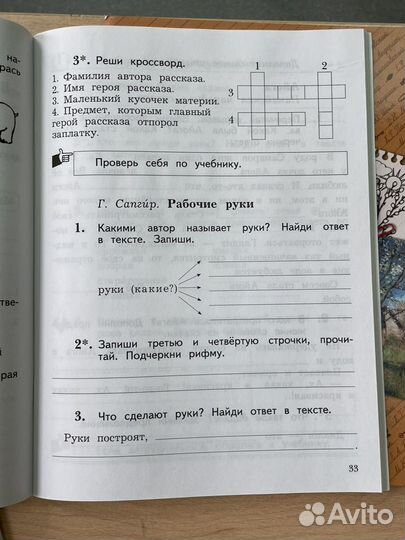 на-
рась
3*. Реши кроссворд.
1. Фамилия автора рассказа.
2. Имя героя рассказа.
3. Маленький кусочек материи.
4. Предмет, которым главный
герой рассказа отпорол
заплатку.
1 2
3
4
Проверь себя по учебнику.
Г. Сапги́р. Рабочие руки
1. Какими автор называет руки? Найди ответ
в тексте. Запиши.
руки (какие?)
2*. Запиши третью и четвёртую строчки, прочи-
тай. Подчеркни рифму.
3. Что сделают руки? Найди ответ в тексте.
Руки построят,
33
тве-
й
рая
Avito